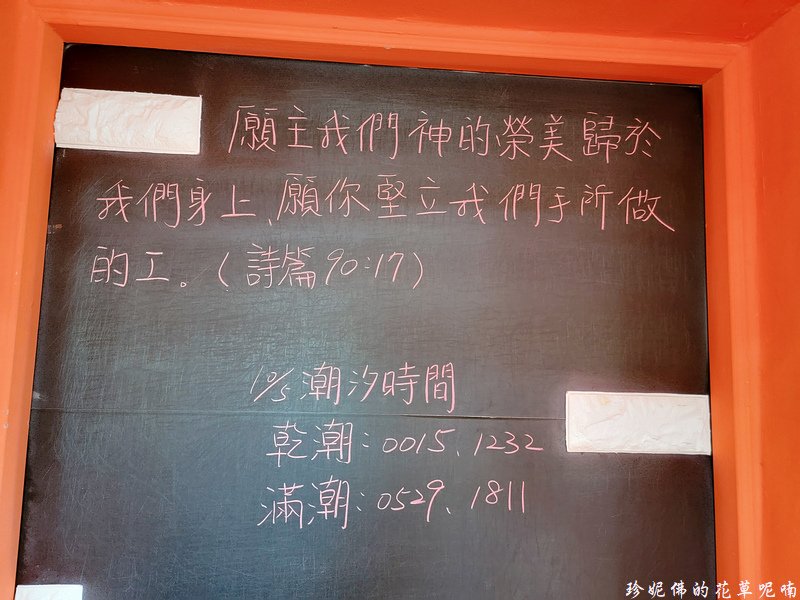 願主我們神的榮美歸於
我們身上、願你堅立我們手所做
的工。(詩篇90:17)
10/5潮汐時間
乾潮:0015、1232
滿潮:0529、1811
珍妮佛的花草呢喃